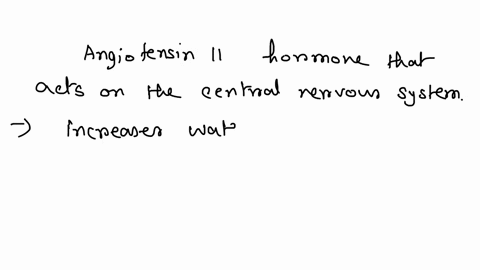 Angiotensin 11 hormone that
acts on the central nervous system.
→ increases wat